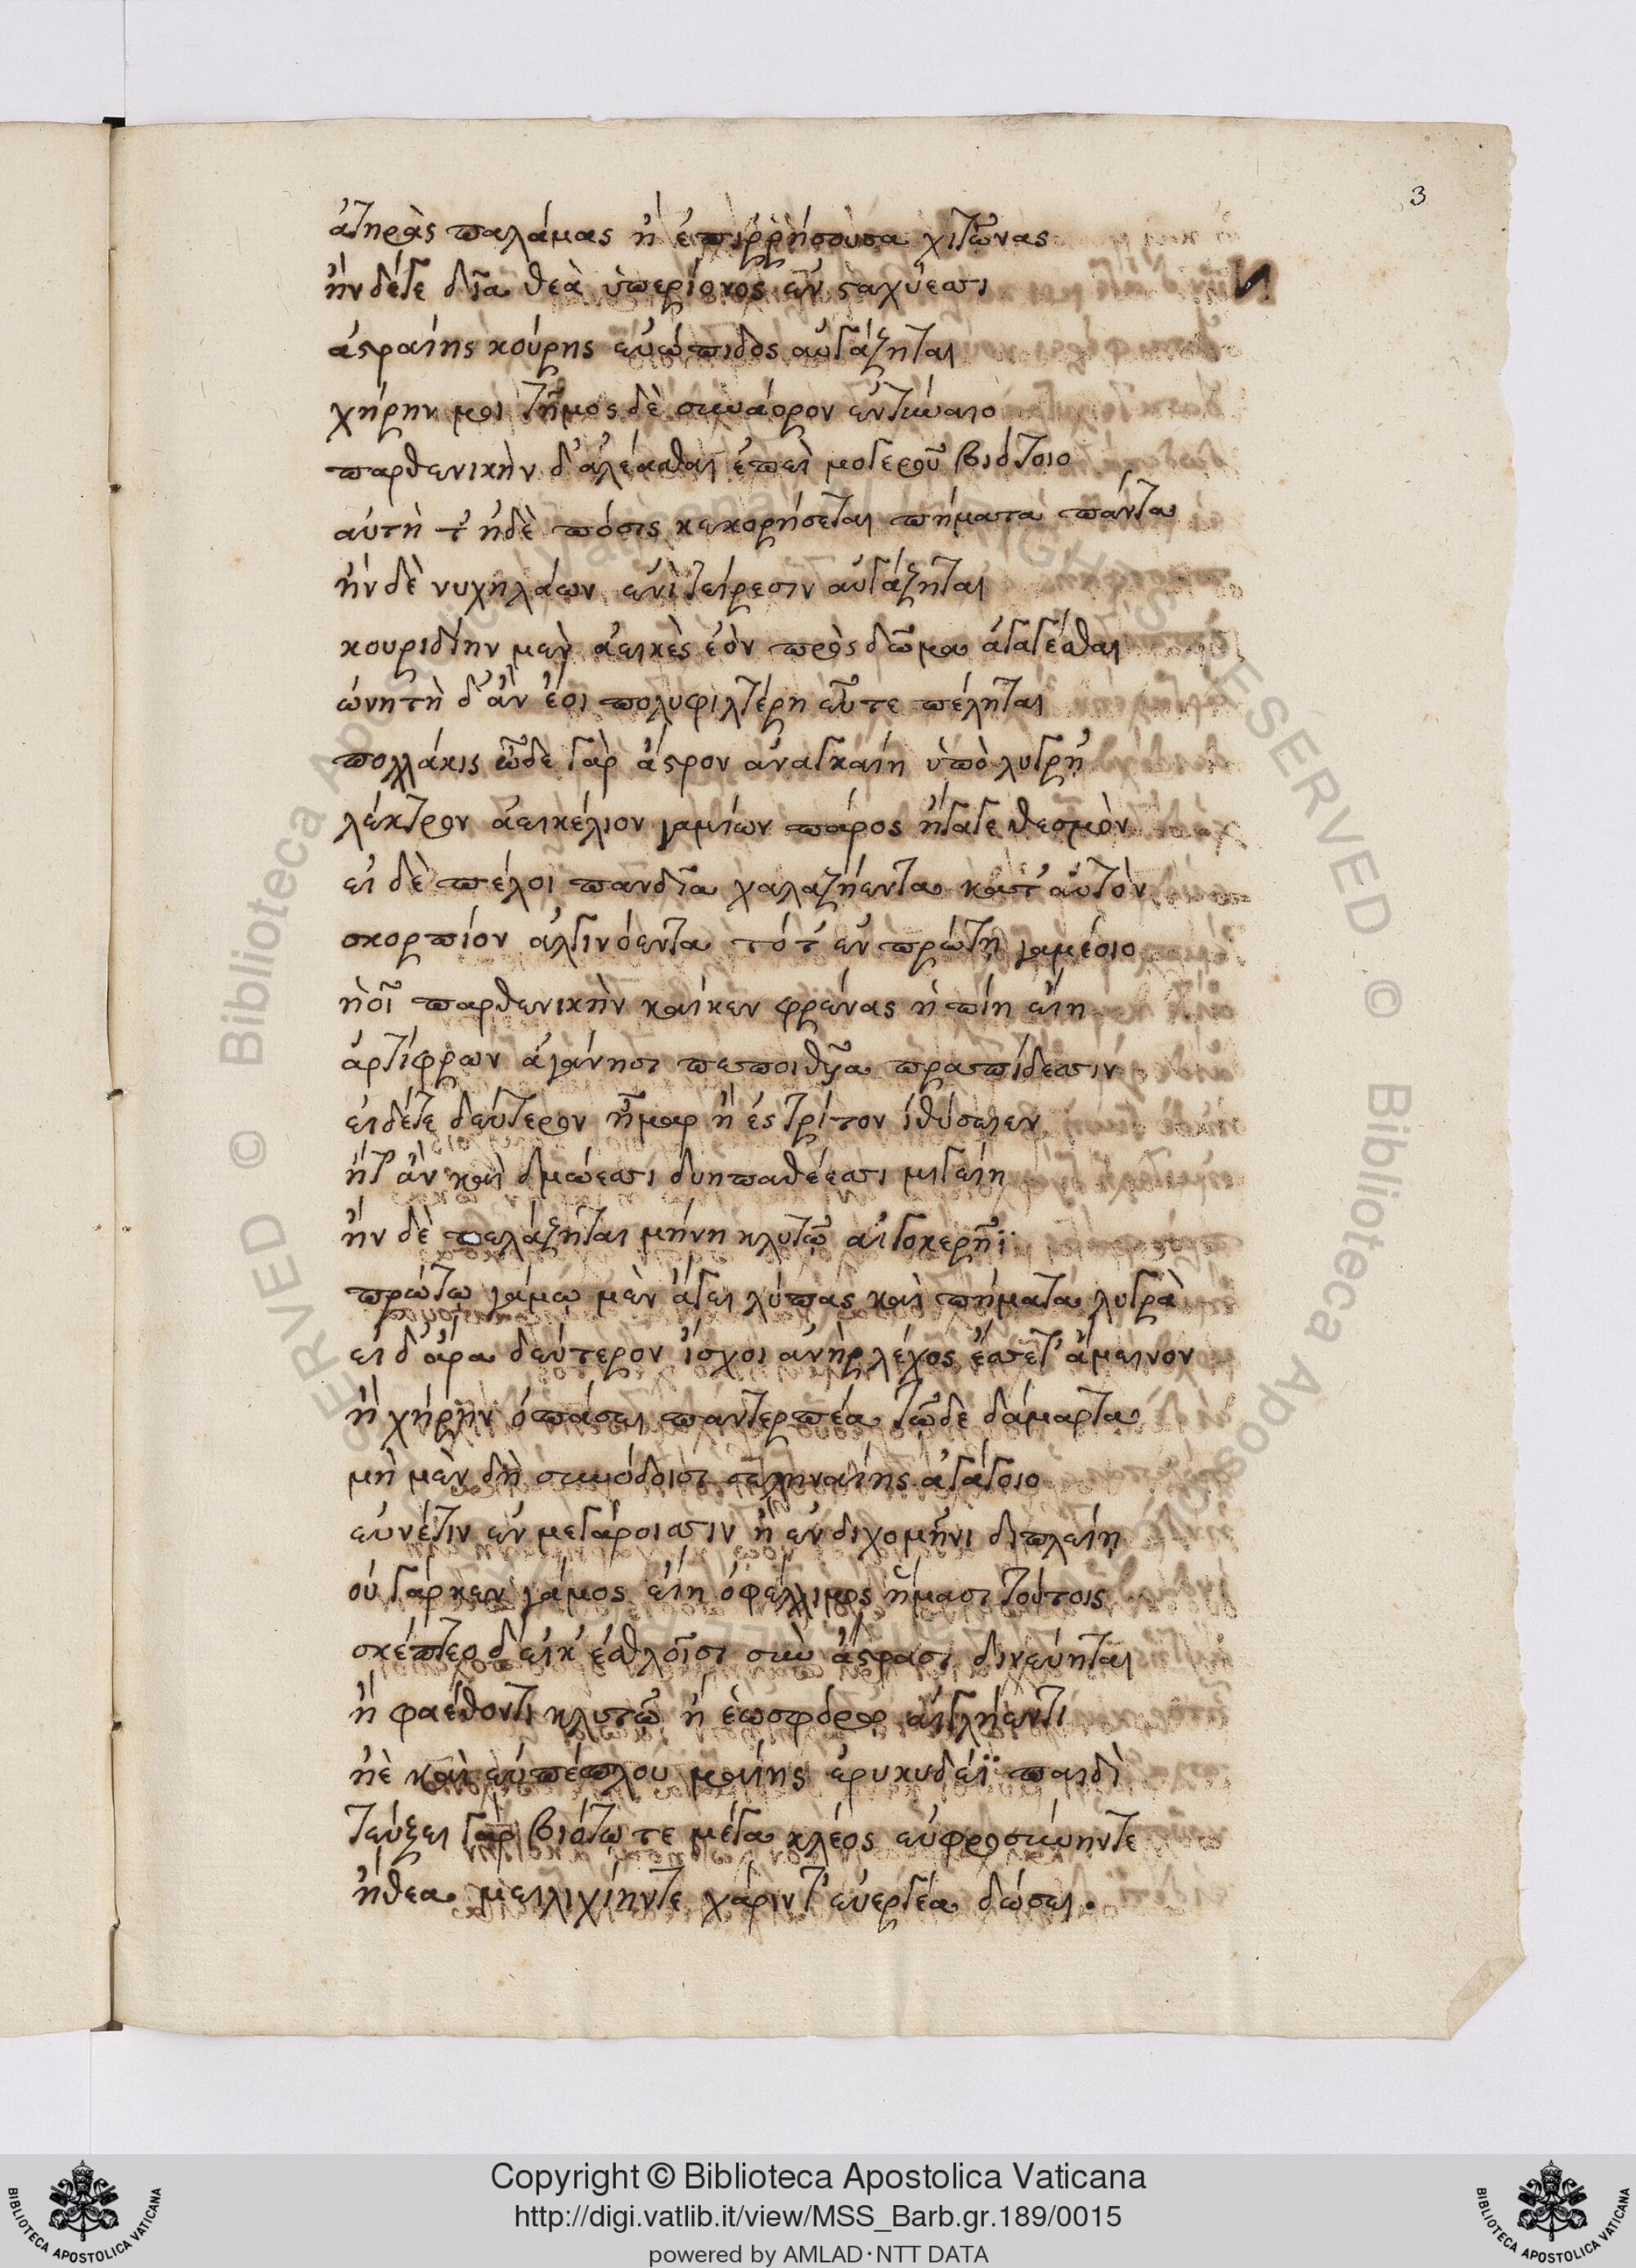 3
ἀτηρὰς παλάμας ἢ ἐπιῤῥήσσουσα χιτῶνας
ἢν δέτε δῖα θεὰ ὑπεριόνος ἐν σταχύεσσι
ἀστραίης κούρης εὐώπιδος αὐγάζηται
χήρην μοι τῆμος δὲ συνάορον ἐντύναιο
παρθενικὴν δ' ἀλέασθαι ἐπεὶ μογεροῦ βιότοιο
αὐτὴ τ' ἠδὲ πόσις κεκορήσεται πήματα πάντα
ἢν δὲ νυχηλάων ἐνὶ τείρεσιν αὐγάζηται
κουριδίην μὲν ἀεικὲς ἐὸν πρὸς δῶμα ἀγαγέσθαι
ὠνητὴ δ' ἂν ἔοι πολυφιλτέρη εὖτε πέληται
πολλάκις ὧδε γὰρ ἄστρον ἀναγκαίῃ ὑπὸ λυγρῇ
λέκτρον ἀεικέλιον γαμίων πάρος ἤγαγε θεσμὸν
εἰ δὲ πέλοι πανδῖα χαλαζήεντα κατ' αὐτὸν
σκορπίον ἀλγινόεντα τότ' ἐν πρώτῃ γαμέοιο
ἤ οἱ παρθενικὴν καί κεν φρένας ἠπίη εἴη
ἀρτίφρων ἀγάνησι πεποιθῦα πραπίδεσσιν
εἰ δέτε δεύτερον ἦμαρ ἢ ἐς τρίτον ἰθύσειεν
ἤτ' ἂν καὶ δμώεσσι δυηπαθέεσσι μιγείη
ἢν δὲ πελάζηται μήνη κλυτῷ αἰγοκερῆϊ
πρώτῳ γάμῳ μὲν ἄγει λύπας καὶ πήματα λυγρὰ
εἰ δ' ἄρα δεύτερον ἴσχοι ἀνὴρ λέχος ἔσσετ' ἄμεινον
ἢ χήρην ὀπάσει παντερπέα τῷδε δάμαρτα
μὴ μὲν δὴ συνόδοισι σεληναίης ἀγάγοιο
εὐνέτιν ἐν μεγάροισσιν ἢ ἐν διχομῆνι διπλείῃ
οὐ γάρ κεν γάμος εἴη ὀφέλλιμος ἤμασι τούτοις
σκέπτεο δ' εἴκ' ἐσθλοῖσι σὺν ἄστρασι δινεύηται
ἢ φαέθοντι κλυτῷ ἢ ἑωσφόρῳ αἰγλήεντι
ἠὲ καὶ εὐπέπλου μαίης ἐρυκυδέϊ παιδὶ
τεύξει γὰρ βιότῳ τε μέγα κλέος εὐφροσύνην τε
ἤθεα μειλιχίην τε χάριν τ' εὐεργέα δώσει.
Copyright © Biblioteca Apostolica Vaticana
http://digi.vatlib.it/view/MSS_Barb.gr.189/0015
powered by AMLAD·NTT DATA
BIBLIOTECA APOSTOLICA VATICANA
BIBLIOTECA APOSTOLICA VATICANA